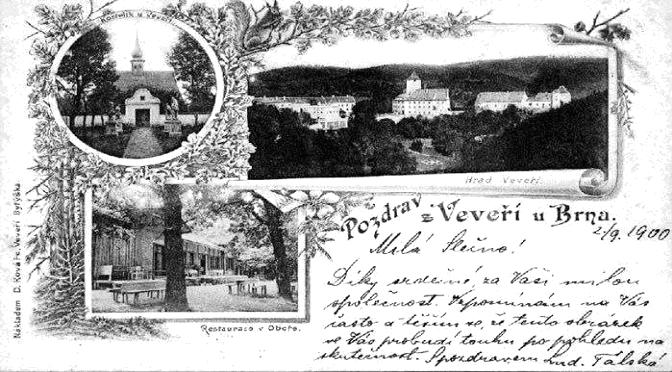 Kostelík u Veveří
Hrad Veveří.
Pozdrav z Veveří u Brna.
2/9. 1900
Milá Slečno!
Díky srdečné, za Vaši milou
společnost. Vzpomínám na Vás
často a těším se, že tento obrázek
ve Vás probudí touhu po pohledu na
skutečnost. S pozdravem Lud. Tálská
Restaurace v Oboře.
Nakladem D. Kováře, Veveří Bytýška